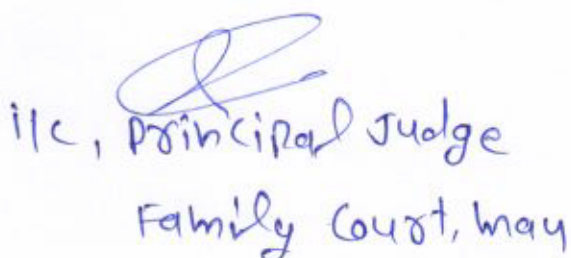 I/C, Principal Judge
Family Court, Mau